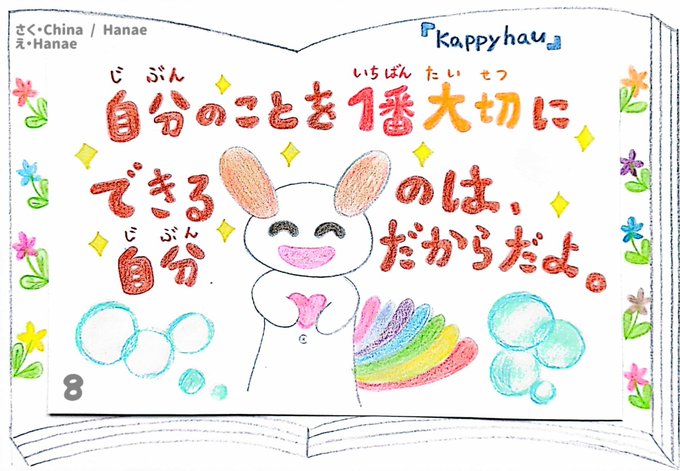 さく・China / Hanae
え・Hanae
『Kappyhau』
じぶん いちばん たいせつ
自分のことを1番大切に
できるのは、
じぶん
自分だからだよ。
8